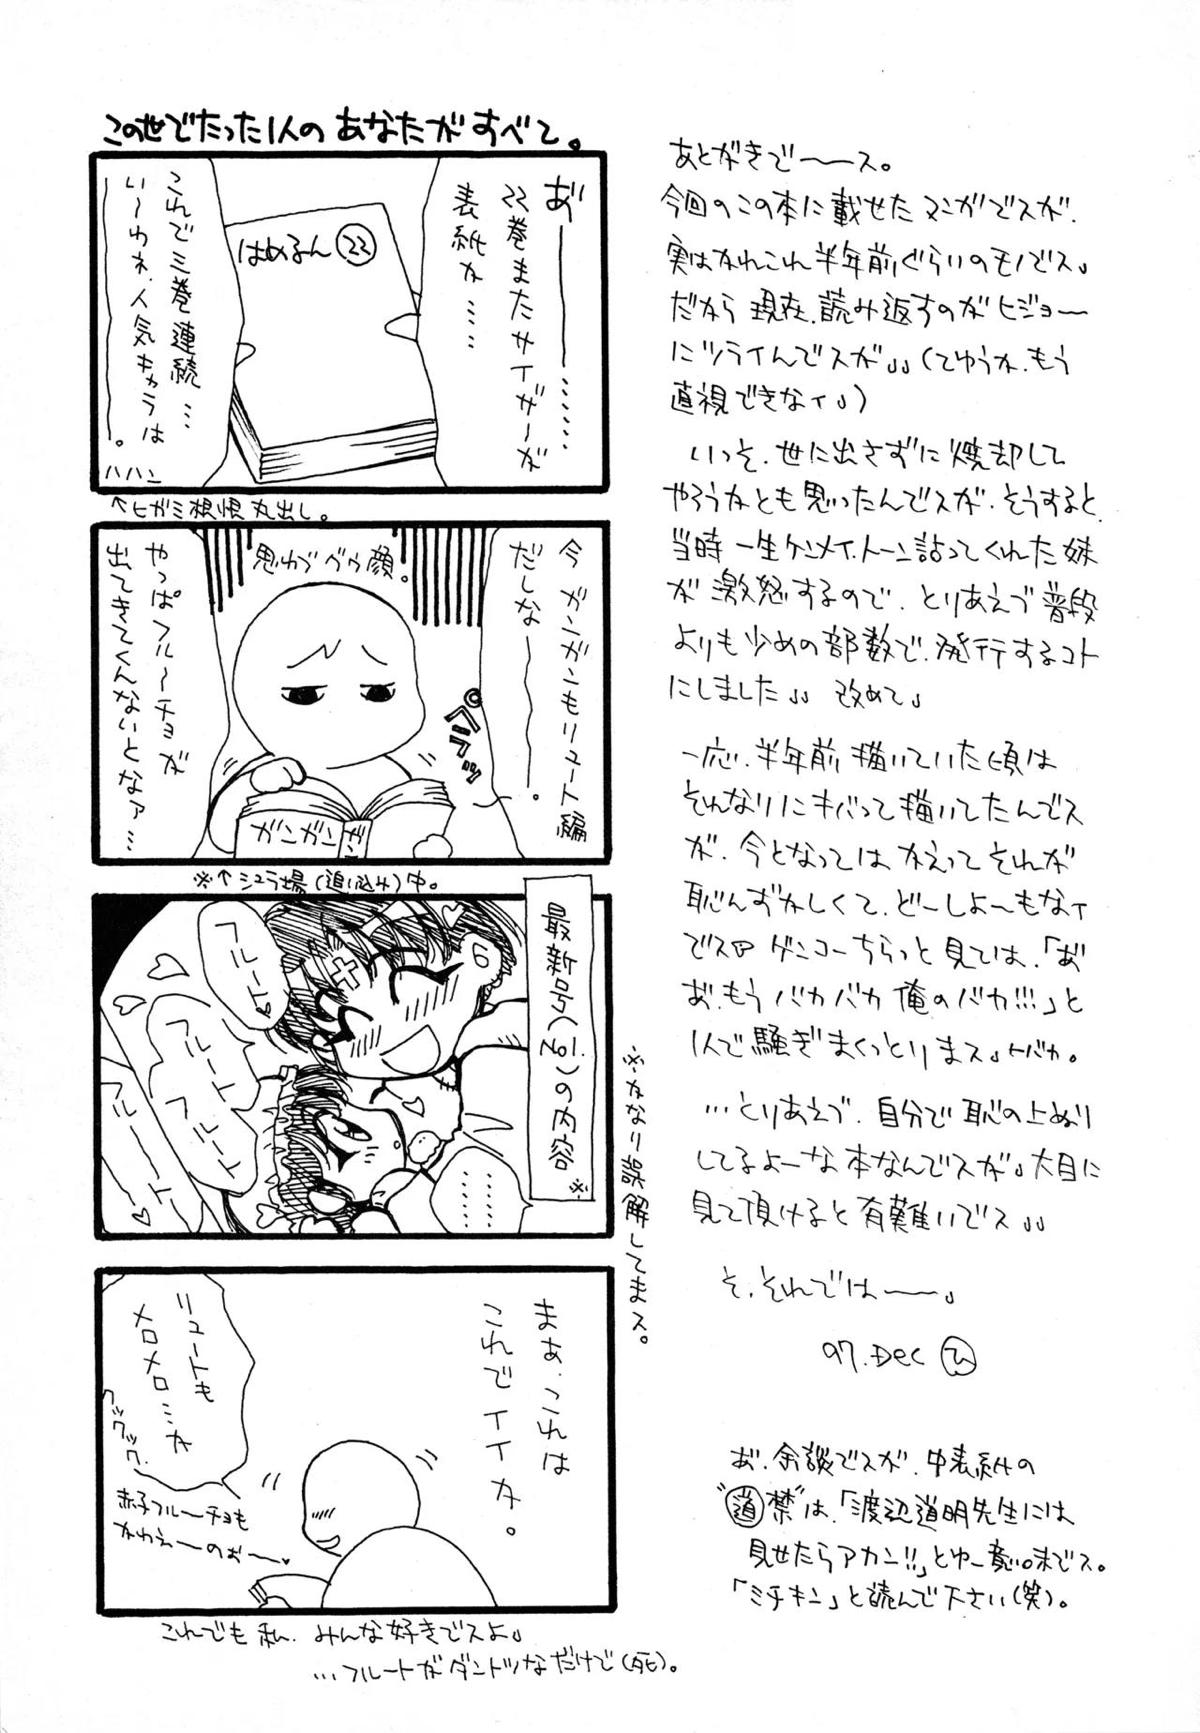 この世でたった1人の あなたが すべて。
あ゛ーーー………
22巻またサイザーが
表紙か……
はめるん㉒
これで三巻連続…
い〜わネ、人気キャラは
ハハン
↑ヒガミ根性丸出し。
今ガンガンもリュート編
だしなーーー。
思わずベゥ顔。
ペラッ
やっぱフルーチョが
出てきてくんないとなァ…
ガンガン
※↑シュラ場(追い込み)中。
最新号(No1.)の内容※
フルート♡
フルート
フルート
フルート
………
※かなり誤解してまス。
まぁ、これは
これでイイカ。
リュートも
メロメロ…か
クックックッ
赤子フルーチョも
かわえーのぉー♥
これでも私、みんな好きでスよ。
…フルートがダントツなだけで(死)。
あとがきで〜〜ス。
今回のこの本に載せたマンガでスが、
実はかれこれ半年前ぐらいのモノでス。
だから現在、読み返すのがヒジョー
にツライんでスが。。(てゆうか、もう
直視できなイ。)
いっそ、世に出さずに焼却して
やろうかとも思ったんでスが、そうすると、
当時一生ケンメイ、トーン貼ってくれた妹
が激怒するので、とりあえず普段
よりも少めの部数で、発行するコト
にしました。。改めて。
一応、半年前描いていた頃は
それなりにキバって描いてたんでス
が、今となってはかえってそれが
恥んずかしくて、どーしよ〜もなイ
でス ゲンコーちらっと見ては、「あ゛
あ゛、もうバカバカ俺のバカ!!!」と
1人で騒ぎまくっとりまス。バカ。
…とりあえず、自分で恥の上ぬり
してるよーな本なんでスが。大目に
見て頂けると有難いでス。。
そ、それでは〜〜。
97.Dec ㋪
あ、余談でスが、中表紙の
“㊀道禁”は、「渡辺道明先生には
見せたらアカン!!」とゆー意味でス。
「ミチキン」と読んで下さい(笑)。